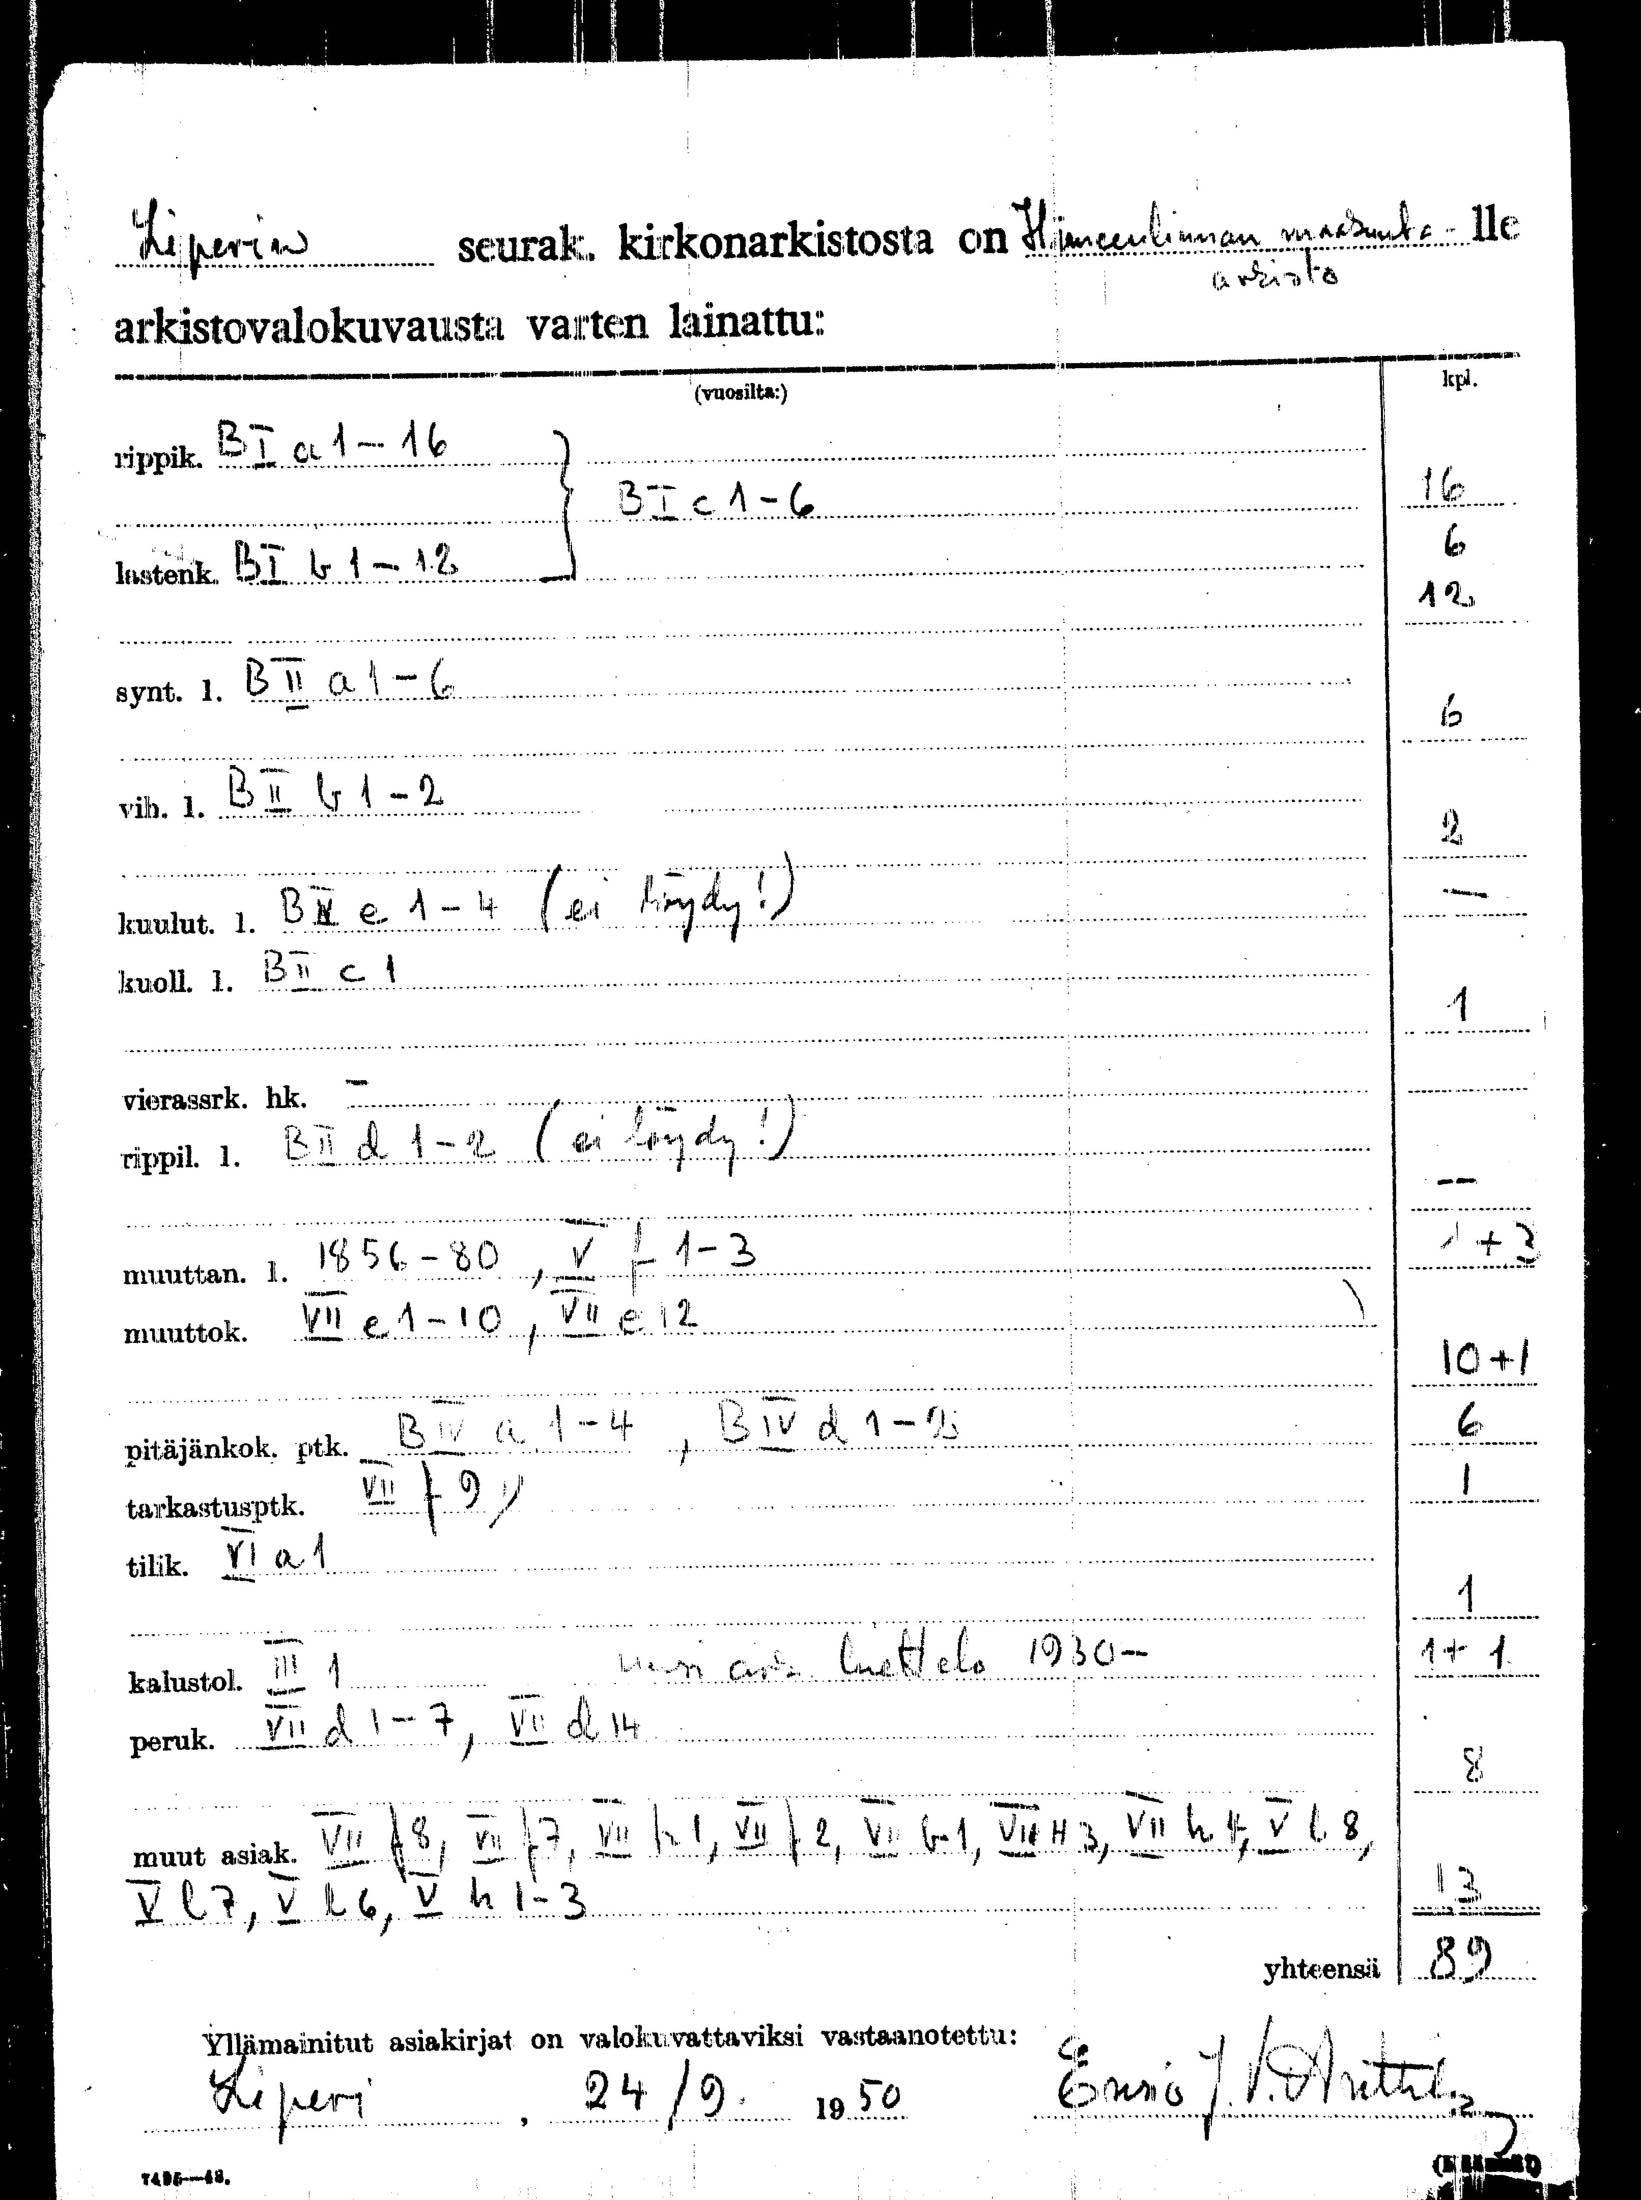 Liperin seurak. kirkonarkistosta on Hämeenlinnan maakunta- lle
arkisto
arkistovalokuvausta varten lainattu:
(vuosilta:) kpl.
rippik. B I a 1 – 16
B I c 1 – 6 16
6
lastenk. B I b 1 – 12
12
synt. l. B II a 1 – 6
6
vih. l. B II b 1 – 2
2
kuulut. l. B IV e 1 – 4 (ei löydy!) —
kuoll. l. B II c 1
1
vierassrk. hk. –
rippil. l. B II d 1 – 2 (ei löydy!)
—
muuttan. l. 1856 – 80, V f 1 – 3 1 + 3
muuttok. VII e 1 – 10, VII e 12
10 + 1
pitäjänkok. ptk. B IV a 1 – 4, B IV d 1 – 2 6
tarkastusptk. VII f 9 1
tilik. VI a 1
1
kalustol. III 1 luettelo 1930 – 1 + 1
peruk. VII d 1 – 7, VII d 14
8
muut asiak. VII f 8, VII f 7, VII h 1, VII f 2, VII b 1, VII H 3, VII h 4, V l 8,
V l 7, V l 6, V h 1 – 3 13
yhteensä 89
Yllämainitut asiakirjat on valokuvattaviksi vastaanotettu:
Liperi, 24/9. 1950 Ensio J. V.
7495—48.